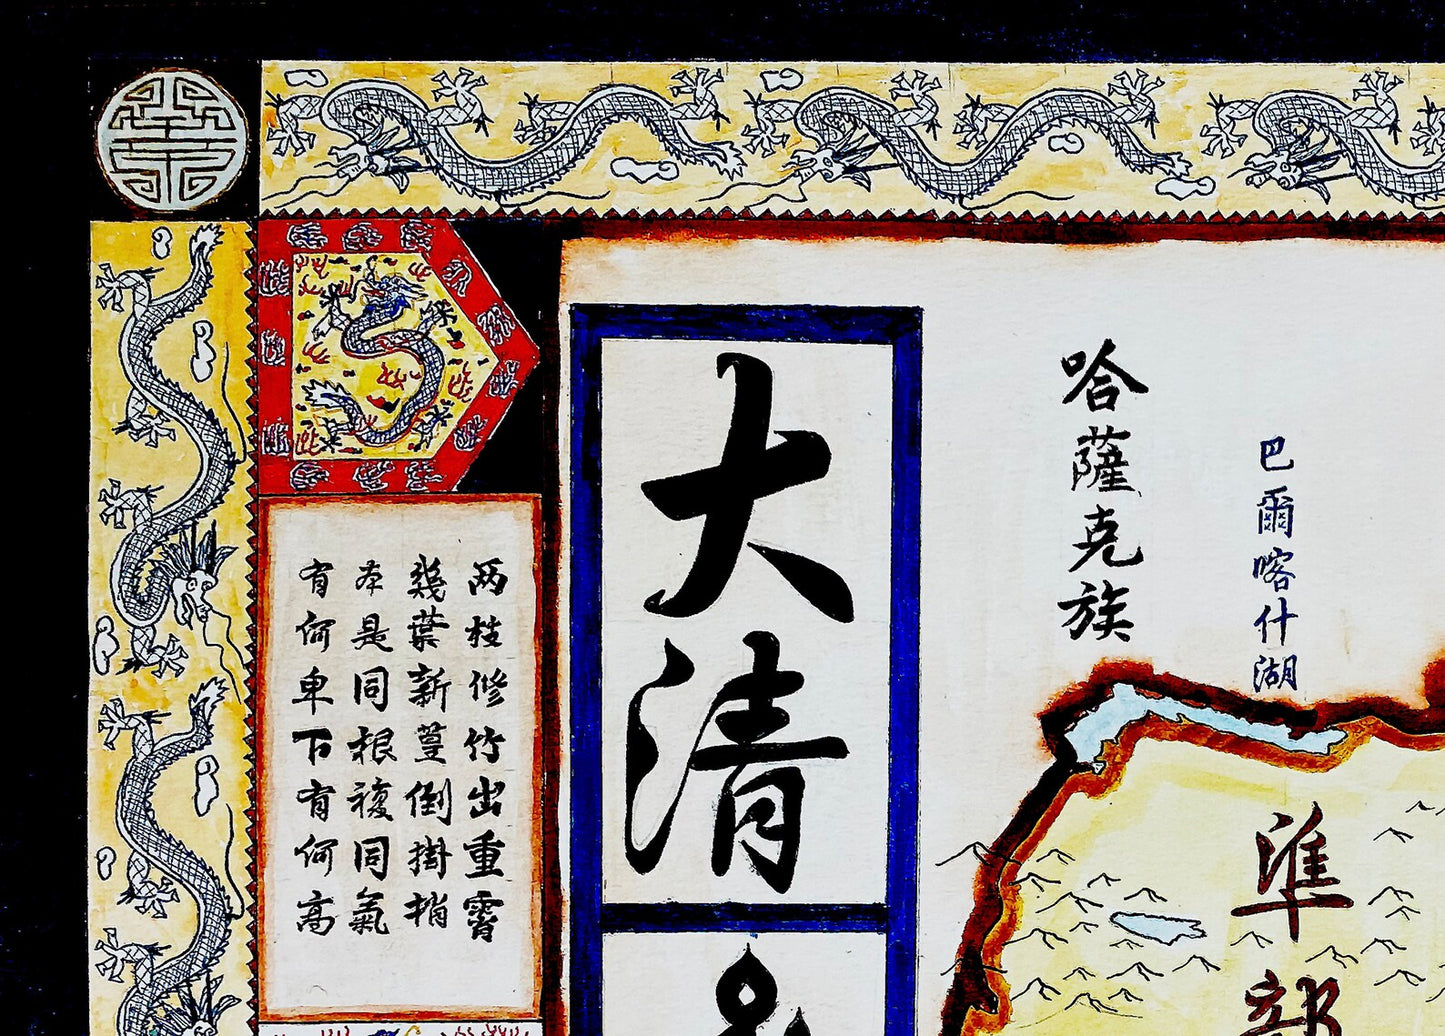 大清
哈薩克族
巴爾喀什湖
準部
两枝修竹出重霄
幾葉新篁倒掛梢
本是同根複同氣
有何卑下有何高